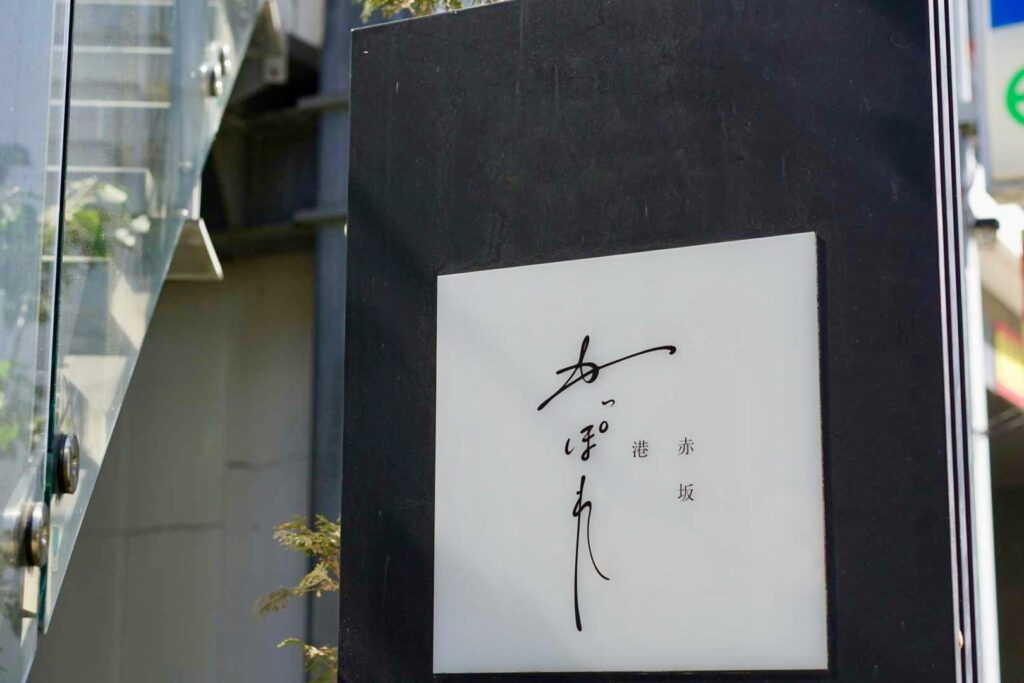 赤坂
港
かっぽれ